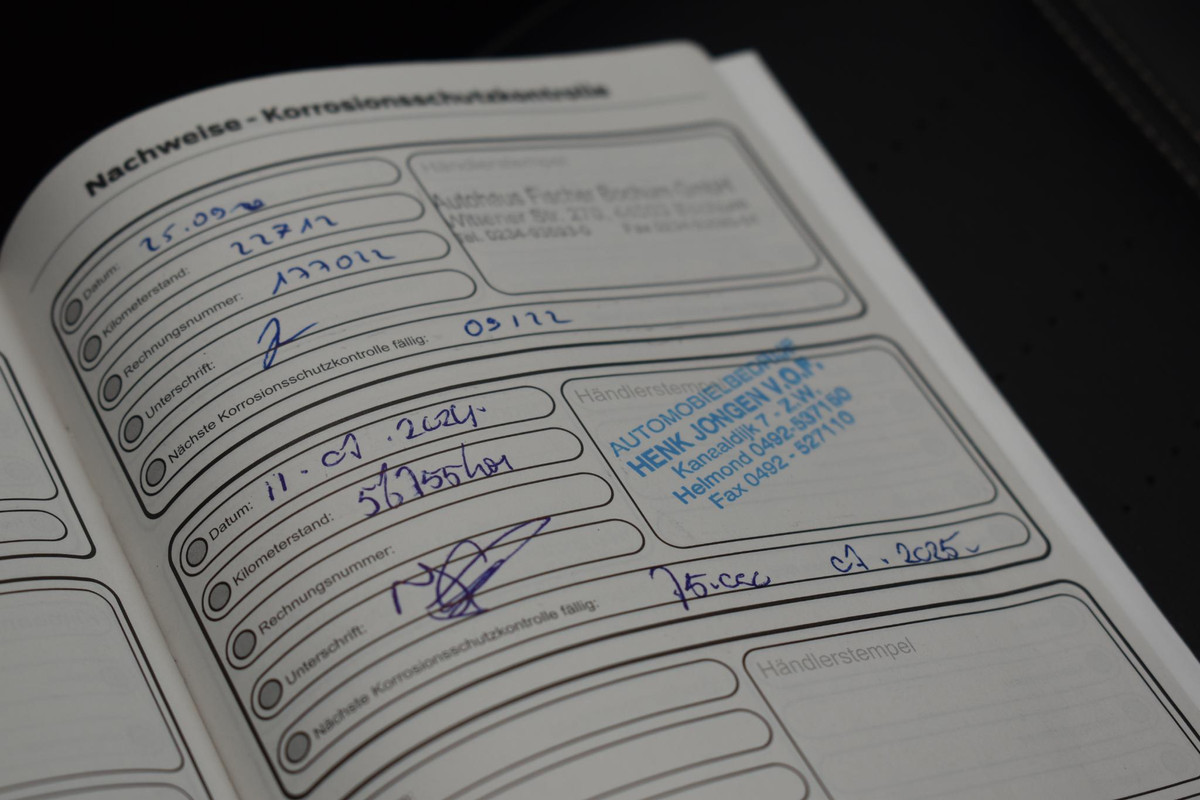 Nachweise - Korrosionsschutzkontrolle
Datum: 25.09.20
Kilometerstand: 22712
Rechnungsnummer: 177022
Unterschrift:
Nächste Korrosionsschutzkontrolle fällig: 09/22
Händlerstempel
Autohaus Fischer Bochum GmbH
Wittener Str.
Tel. 0234-93593-0 Fax
Datum: 11.07.2024.
Kilometerstand: 56755km
Rechnungsnummer:
Unterschrift:
Nächste Korrosionsschutzkontrolle fällig: 75.000 07.2025.
Händlerstempel
AUTOMOBIELBEDRIJF
HENK JONGEN V.O.F.
Kanaaldijk 7 - Z.W.
Helmond 0492-537150
Fax 0492 - 527110
Händlerstempel